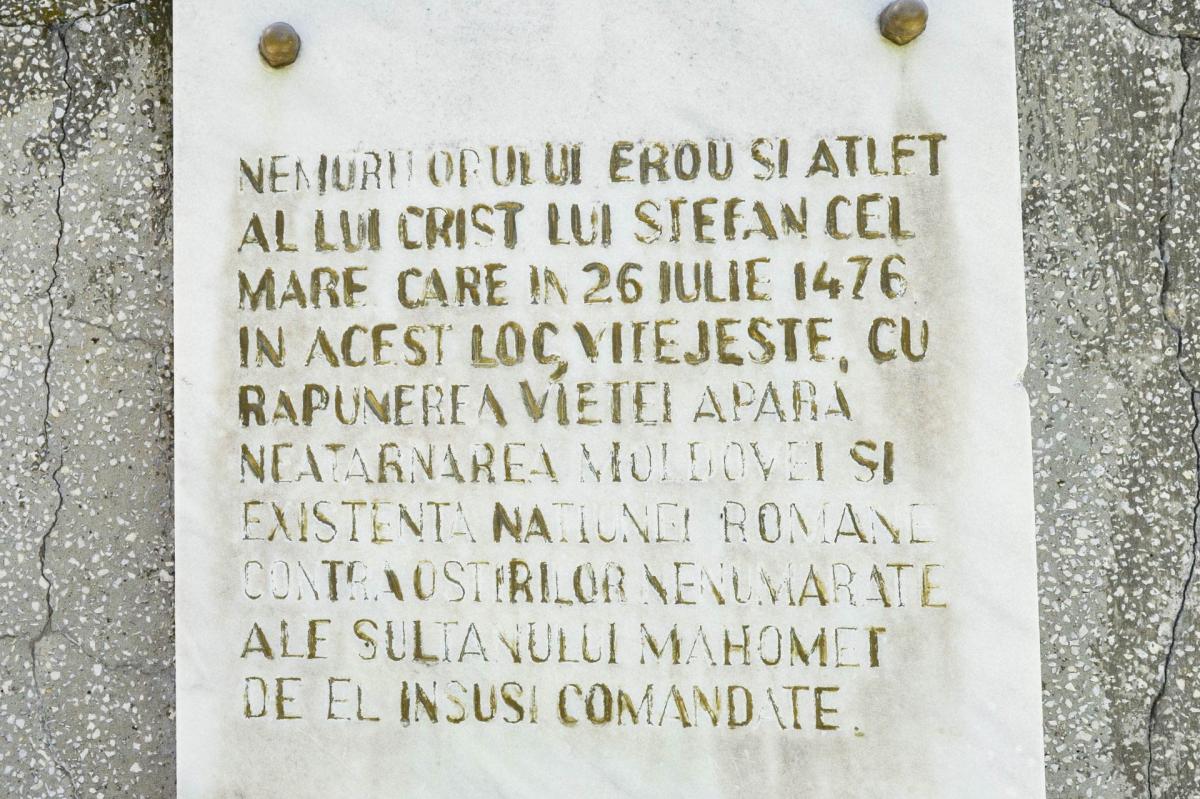 NEMURITORULUI EROU SI ATLET
AL LUI CRIST LUI STEFAN CEL
MARE CARE IN 26 IULIE 1476
IN ACEST LOC, VITEJESTE, CU
RAPUNEREA VIETEI APARA
NEATARNAREA MOLDOVEI SI
EXISTENTA NATIUNEI ROMANE
CONTRA OSTIRILOR NENUMARATE
ALE SULTANULUI MAHOMET
DE EL INSUSI COMANDATE.